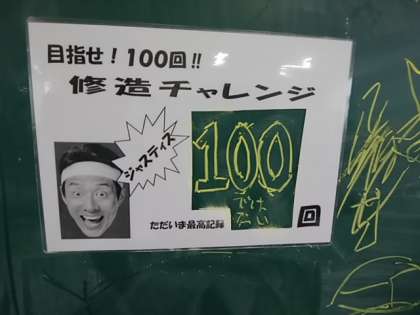 目指せ！100回!!
修造チャレンジ
ジャスティス
100
ただいま最高記録
回